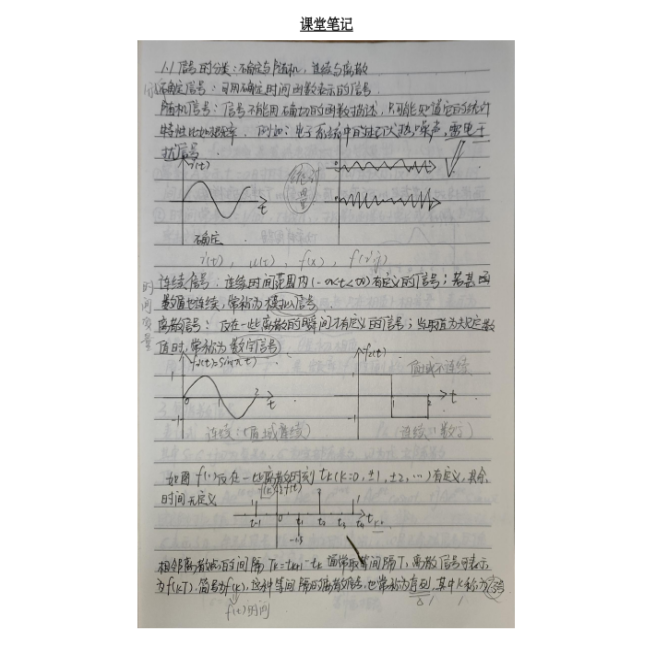 课堂笔记
1.1 信号的分类:确定与随机,连续与离散
确定信号:可用确定时间函数表示的信号
随机信号:信号不能用确切的函数描述,只可能知道它的统计
特性比如概率. 例如:电子系统中的起伏热噪声,雷电干
扰信号
i(t)
统计
t
确定
i(t), u(t), f(x),
连续信号:连续时间范围内(-∞<t<∞)有定义的信号;若其函
数值也连续,常称为模拟信号.
时间变量
离散信号:仅在一些离散的瞬间才有定义的信号;当取值为规定数
值时,常称为数字信号
f₁(t)=sin(πt)
f₂(t)
值域不连续
1
0
1
2
t
-1
t
-1
如图 f(t)仅在一些离散时刻 tₖ(k=0, ±1, ±2, …)有定义,其余
时间无定义
f(t)
0
t₁
t₂
t₃
t₄
相邻离散点的间隔 Tₖ=tₖ₊₁-tₖ 通常取等间隔T,离散信号可表示
为f(kT),简写为f(k),这种等间隔的离散信号也常称为序列,其中k称为序号